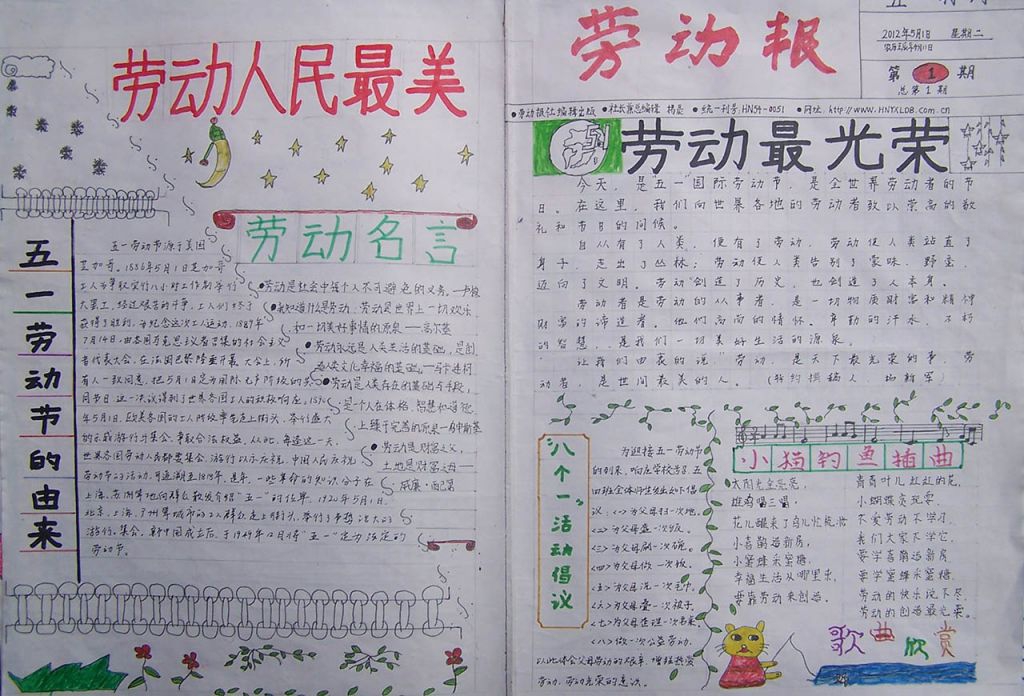 劳动人民最美
五一劳动节的由来
五一劳动节源于美国
芝加哥。1886年5月1日芝加哥
工人为争取实行八小时工作制举行
大罢工，经过艰苦的斗争，工人们终于
获得了胜利。为纪念这次工人运动，1889年
7月14日，由各国马克思主义者召集的社会主义
者代表大会，在法国巴黎隆重开幕。大会上，所
有人一致同意，把5月1日定为国际无产阶级的共
同节日。这一决议得到了世界各国工人的积极响应。1890
年5月1日，欧美各国的工人阶级率先走上街头，举行盛大
的示威游行与集会，争取合法权益。从此，每逢这一天，
世界各国劳动人民都要集会、游行以示庆祝。中国人民庆祝
劳动节的活动，可追溯至1918年。是年，一些革命的知识分子在
上海、苏州等地向群众散发介绍“五一”的传单。1920年5月1日，
北京、上海、广州等城市的工人群众走上街头，举行了声势浩大的
游行、集会。新中国成立后，于1949年12月将“五一”定为法定的
劳动节。
劳动名言
●劳动是社会中每个人不可避免的义务。—卢梭
●我知道什么是劳动：劳动是世界上一切欢乐
和一切美好事情的源泉——高尔基
●劳动永远是人类生活的基础，是创
造人类文化幸福的基础——马卡连柯
●劳动是人类存在的基础与手段，
是一个人在体格、智慧和道德
上臻于完善的源泉—乌申斯基
●劳动是财富之父，
土地是财富之母——
威廉·配第
劳动报
2012年5月1日 星期二
第1期
总第1期
●劳动报社编辑出版 ●社长兼总编辑 杨 ●统一刊号:HN54-0051 ●网址：http://www.HNYXLDB.com.cn
51
劳动最光荣
今天，是“五一”国际劳动节，是全世界劳动者的节
日。在这里，我们向世界各地的劳动者致以崇高的敬
礼和节日的问候。
自从有了人类，便有了劳动，劳动使人类站直了
身子，走出了丛林；劳动使人类告别了蒙昧、野蛮，
迈向了文明。劳动创造了历史，也创造了人本身。
劳动者是劳动的从事者，是一切物质财富和精神
财富的缔造者。他们高尚的情怀、辛勤的汗水、不朽
的智慧，是我们一切美好生活的源泉。
让我们由衷的说“劳动，是天下最光荣的事，劳
动者，是世间最美的人。（特约撰稿人 杨新军）
“八个一”活动倡议
为迎接五一劳动节
的到来，响应学校号召，五
四班全体师生发出如下倡
议：<一>为父母扫一次地。
<二>为父母盛一次饭。
<三>为父母刷一次碗。
<四>为父母做一次饭。
<五>为父母洗一次毛巾。
<六>为父母叠一次被子。
<七>为父母整理一次书桌。
<八>做一次公益劳动。
以此体会父母劳动的艰辛，增强热爱
劳动，劳动光荣的意识。
小猫钓鱼插曲
太阳光金亮亮，
雄鸡唱三唱，
花儿醒来了鸟儿忙梳妆
小喜鹊造新房，
小蜜蜂采蜜糖，
幸福生活从哪里来，
要靠劳动来创造。
青青叶儿红红的花，
小蝴蝶贪玩耍，
不爱劳动不学习，
我们大家不学它，
要学喜鹊造新房
要学蜜蜂采蜜糖，
劳动的快乐说不尽，
劳动的创造最光荣。
歌曲欣赏